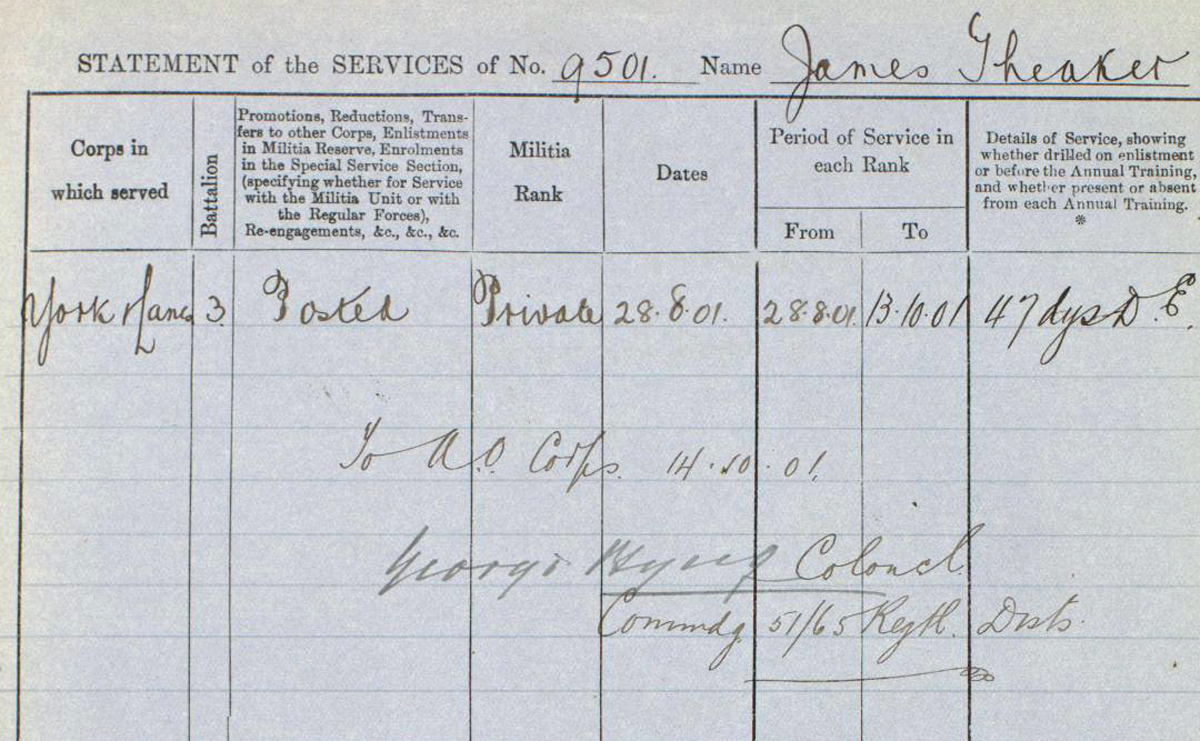 STATEMENT of the SERVICES of No. 9501. Name James Theaker
Corps in which served
Battalion
Promotions, Reductions, Trans-
fers to other Corps, Enlistments
in Militia Reserve, Enrolments
in the Special Service Section,
(specifying whether for Service
with the Militia Unit or with
the Regular Forces),
Re-engagements, &c., &c., &c.
Militia
Rank
Dates
Period of Service in
each Rank
From To
Details of Service, showing
whether drilled on enlistment
or before the Annual Training,
and whether present or absent
from each Annual Training.
*
York & Lanc 3. Posted Private 28.8.01. 28.8.01. 13.10.01 47 dys D.E.
To A.O. Corps. 14.10.01.
George Colonel
Commdg. 51/65 Regtl. Dists.